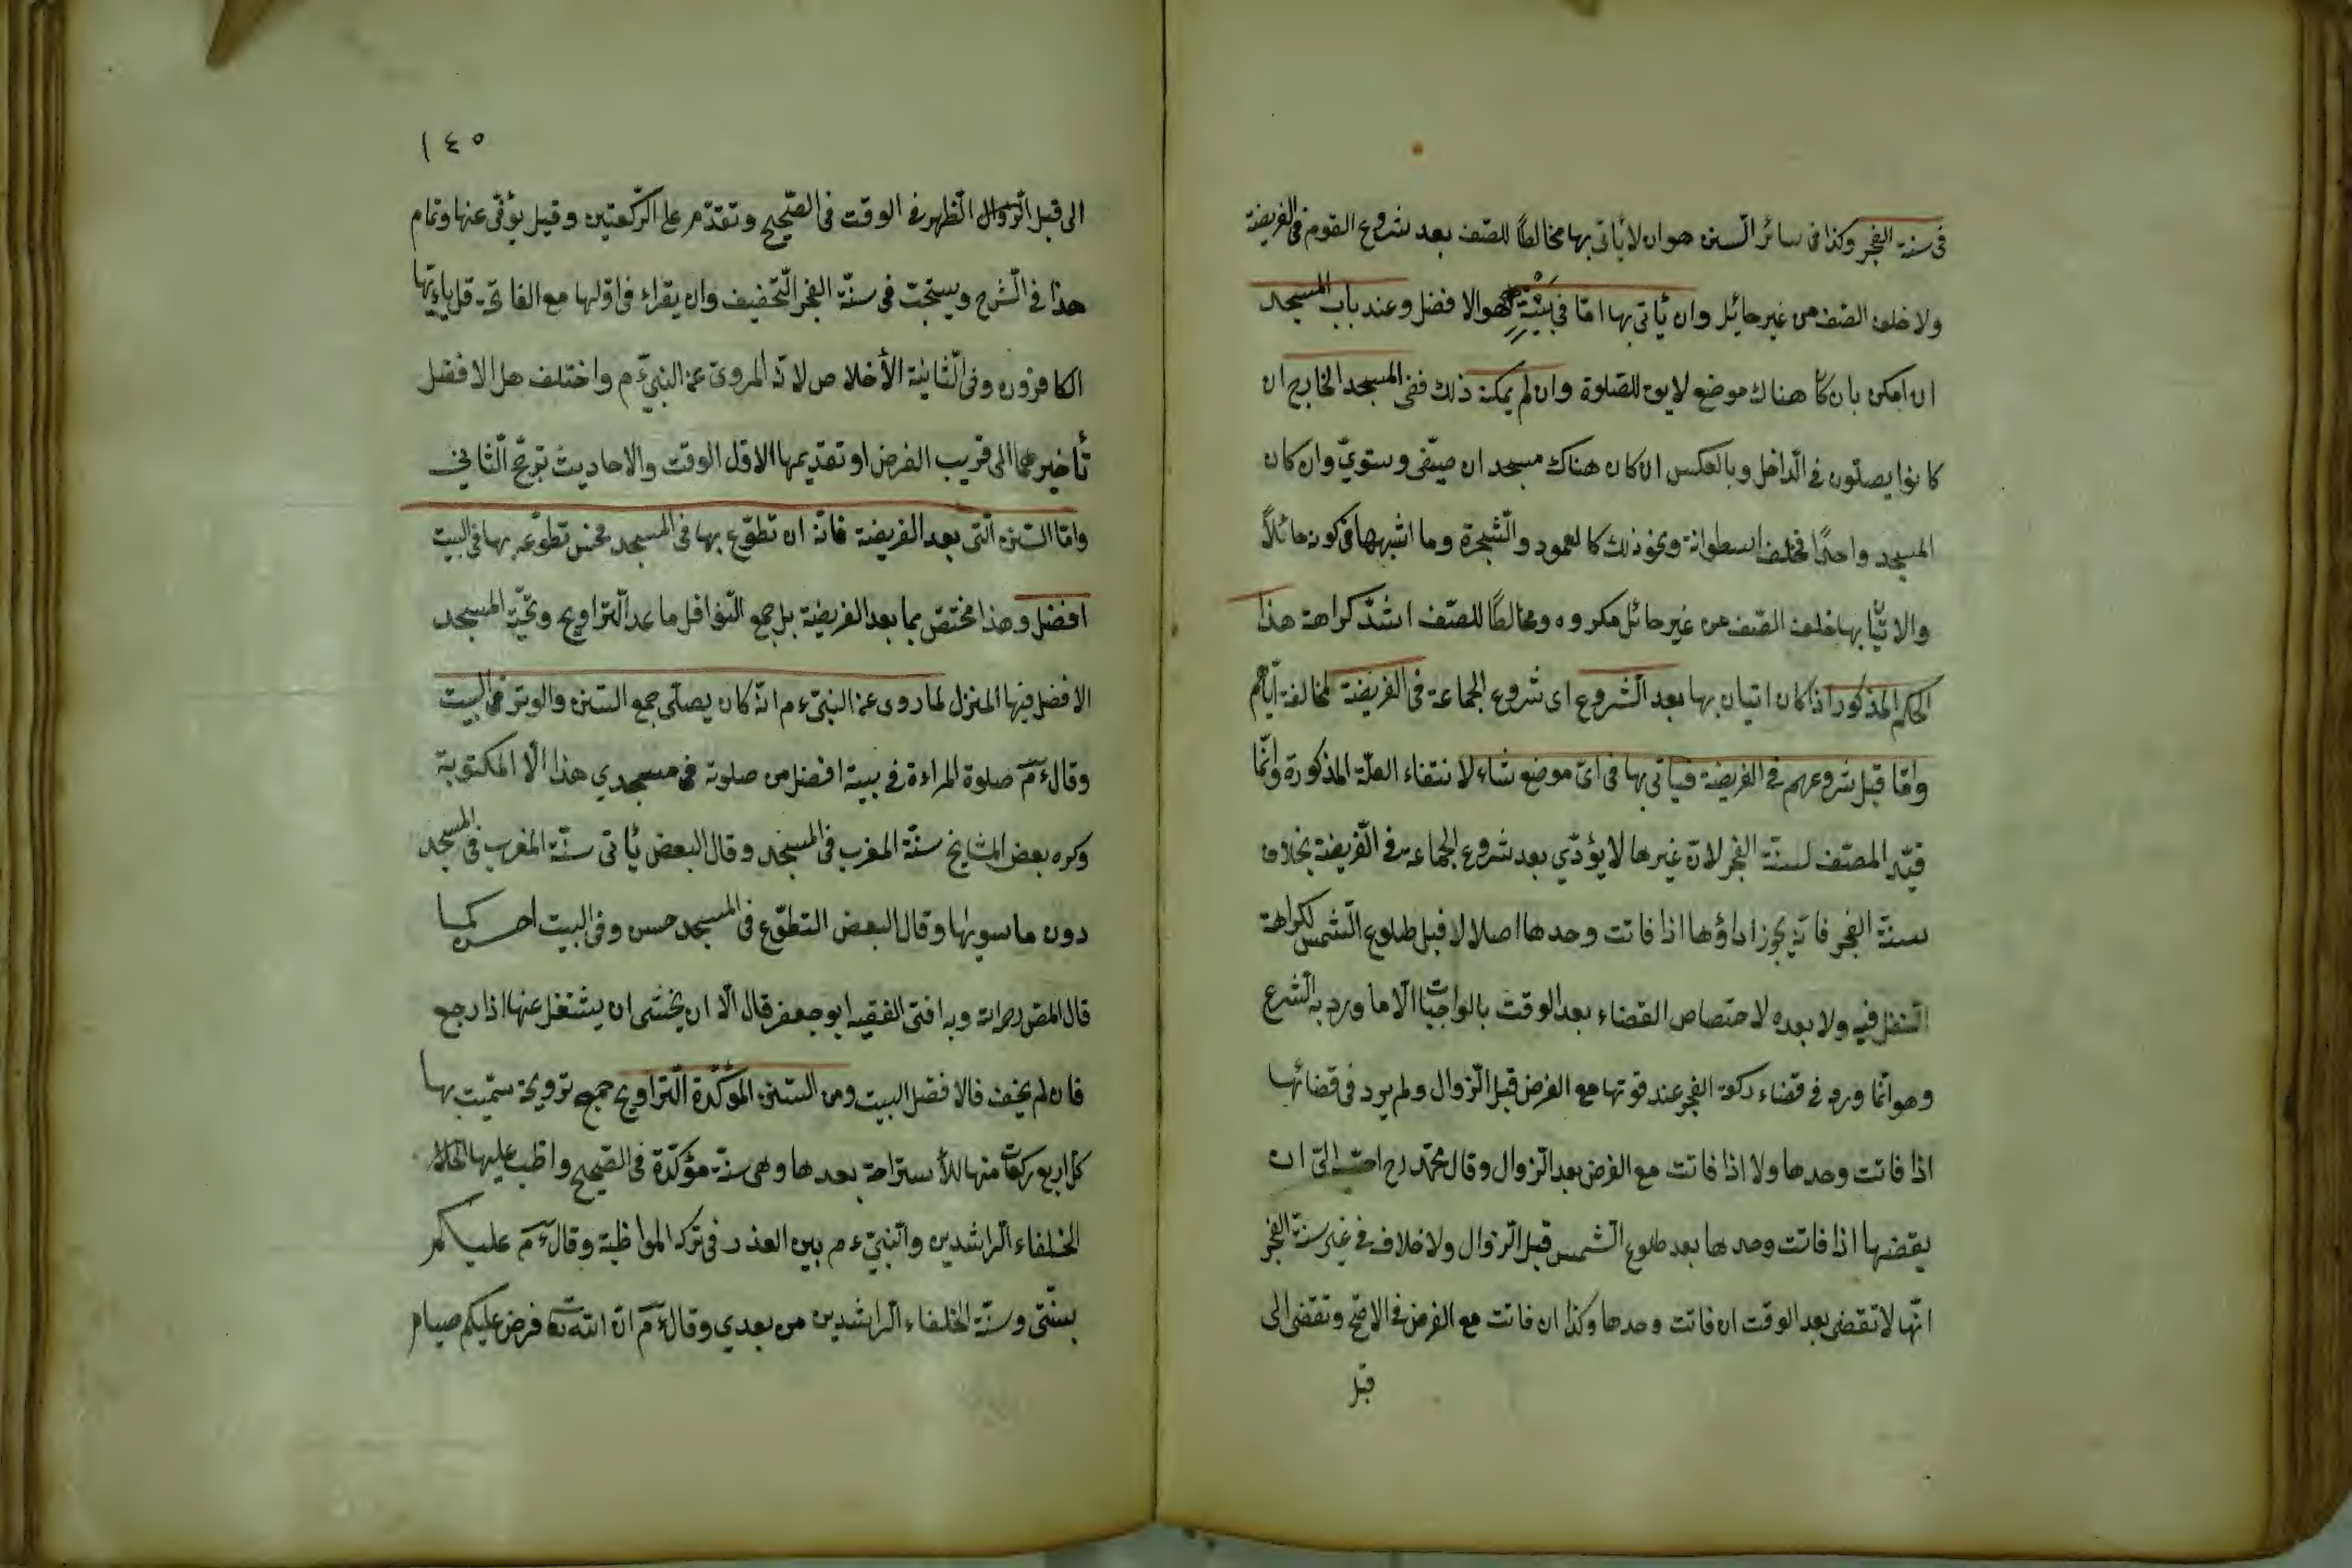 فى سنة الفجر وكذا فى سائر السنن هو ان لا يأتى بها مخالطًا للصّف بعد شروع القوم فى الفريضة
ولا خلف الصّف من غير حائل وان يأتى بها امّا فى بيته وهو الافضل وعند باب المسجد
ان امكن بان كان هناك موضع لايق للصلوة وان لم يمكنه ذلك ففى المسجد الخارج ان
كانوا يصلّون فى الدّاخل وبالعكس ان كان هناك مسجد ان صيفى وستويّ وان كان
المسجد واحدًا فخلف اسطوانة ونحو ذلك كالعمود والشّجرة وما اشبهها فى كونه حائلًا
والاتيان بها خلف الصّف من غير حائل مكروه ومخالطًا للصّف اشدّ كراهة هذا
الحكم المذكور اذا كان اتيان بها بعد الشّروع اى شروع الجماعة فى الفريضة لمخالفة ايّاهم
وامّا قبل شروعهم فى الفريضة فيأتى بها فى اىّ موضع شاء لانتفاء العلّة المذكورة وانّما
قيّد المصنّف لسنّة الفجر لانّ غيرها لا يؤدّي بعد شروع الجماعة فى الفريضة بخلاف
سنّة الفجر فانّه يجوز اداؤها اذا فاتت وحدها اصلا لا قبل طلوع الشّمس لكراهة
التنفل فيه ولا بعده لاختصاص القضاء بعد الوقت بالواجبات الّا ما ورد به الشّرع
وهو انّما ورد فى قضاء ركعة الفجر عند فوتها مع الفرض قبل الزّوال ولم يرد فى قضائها
اذا فاتت وحدها ولا اذا فاتت مع الفرض بعد الزّوال وقال محمّد رح احبّ الىّ ان
يقضيها اذا فاتت وحدها بعد طلوع الشّمس قبل الزّوال ولا خلاف فى غير سنّة الفجر
انّها لا تقضى بعد الوقت ان فاتت وحدها وكذا ان فاتت مع الفرض فى الاصحّ وتقضى الى
قبل
١٤٥
الى قبل الزّوال الظهر فى الوقت فى الصّحيح وتقدّم على الرّكعتين وقيل يؤتى عنها وتمام
هذا فى الشّرح ويستحبّ فى سنّة الفجر التّخفيف وان يقراء فى اوّلها مع الفاتحة قل ياءيّها
الكافرون وفى الثّانية الأخلاص لانّه المروىّ عن النبىّ ءم واختلف هل الافضل
تأخيرهما الى قريب الفرض او تقديمها الاوّل الوقت والاحاديث ترجّح الثّاني
وامّا السّنن الّتى بعد الفريضة فانّه ان تطوّع بها فى المسجد فحسن تطوّعه بها فى البيت
افضل وهذا مختصّ بما بعد الفريضة بل جمع النّوافل ما عد التّراويح وتحيّة المسجد
الافضل فيها المنزل لما روى عن النبىّ ءم انّه كان يصلّى جمع السّنن والوتر فى البيت
وقال ءم صلوة المراءة فى بيته افضل من صلوته فى مسجدي هذا الّا المكتوبة
وكره بعض المشايخ سنّة المغرب فى المسجد وقال البعض يأتى سنّة المغرب فى المسجد
دون ما سويها وقال البعض التطوّع فى المسجد حسن وفى البيت احسن كما
قال المص رح وبه افتى الفقيه ابو جعفر قال الّا ان يخشى ان يشتغل عنها اذا رجع
فان لم يخف فالافضل البيت ومن السنن المؤكّدة التّراويح جمع ترويحة سمّيت بها
كلّ اربع ركعات منها للأستراحة بعدها وهى سنّة مؤكّدة فى الصّحيح واظب عليها
الخلفاء الرّاشدين والنّبىّ ءم بين العذر فى ترك المواظبة وقال ءم عليكم
بسنّتى وسنّة الخلفاء الرّاشدين من بعدي وقال ءم انّ اللّه تع فرض عليكم صيام